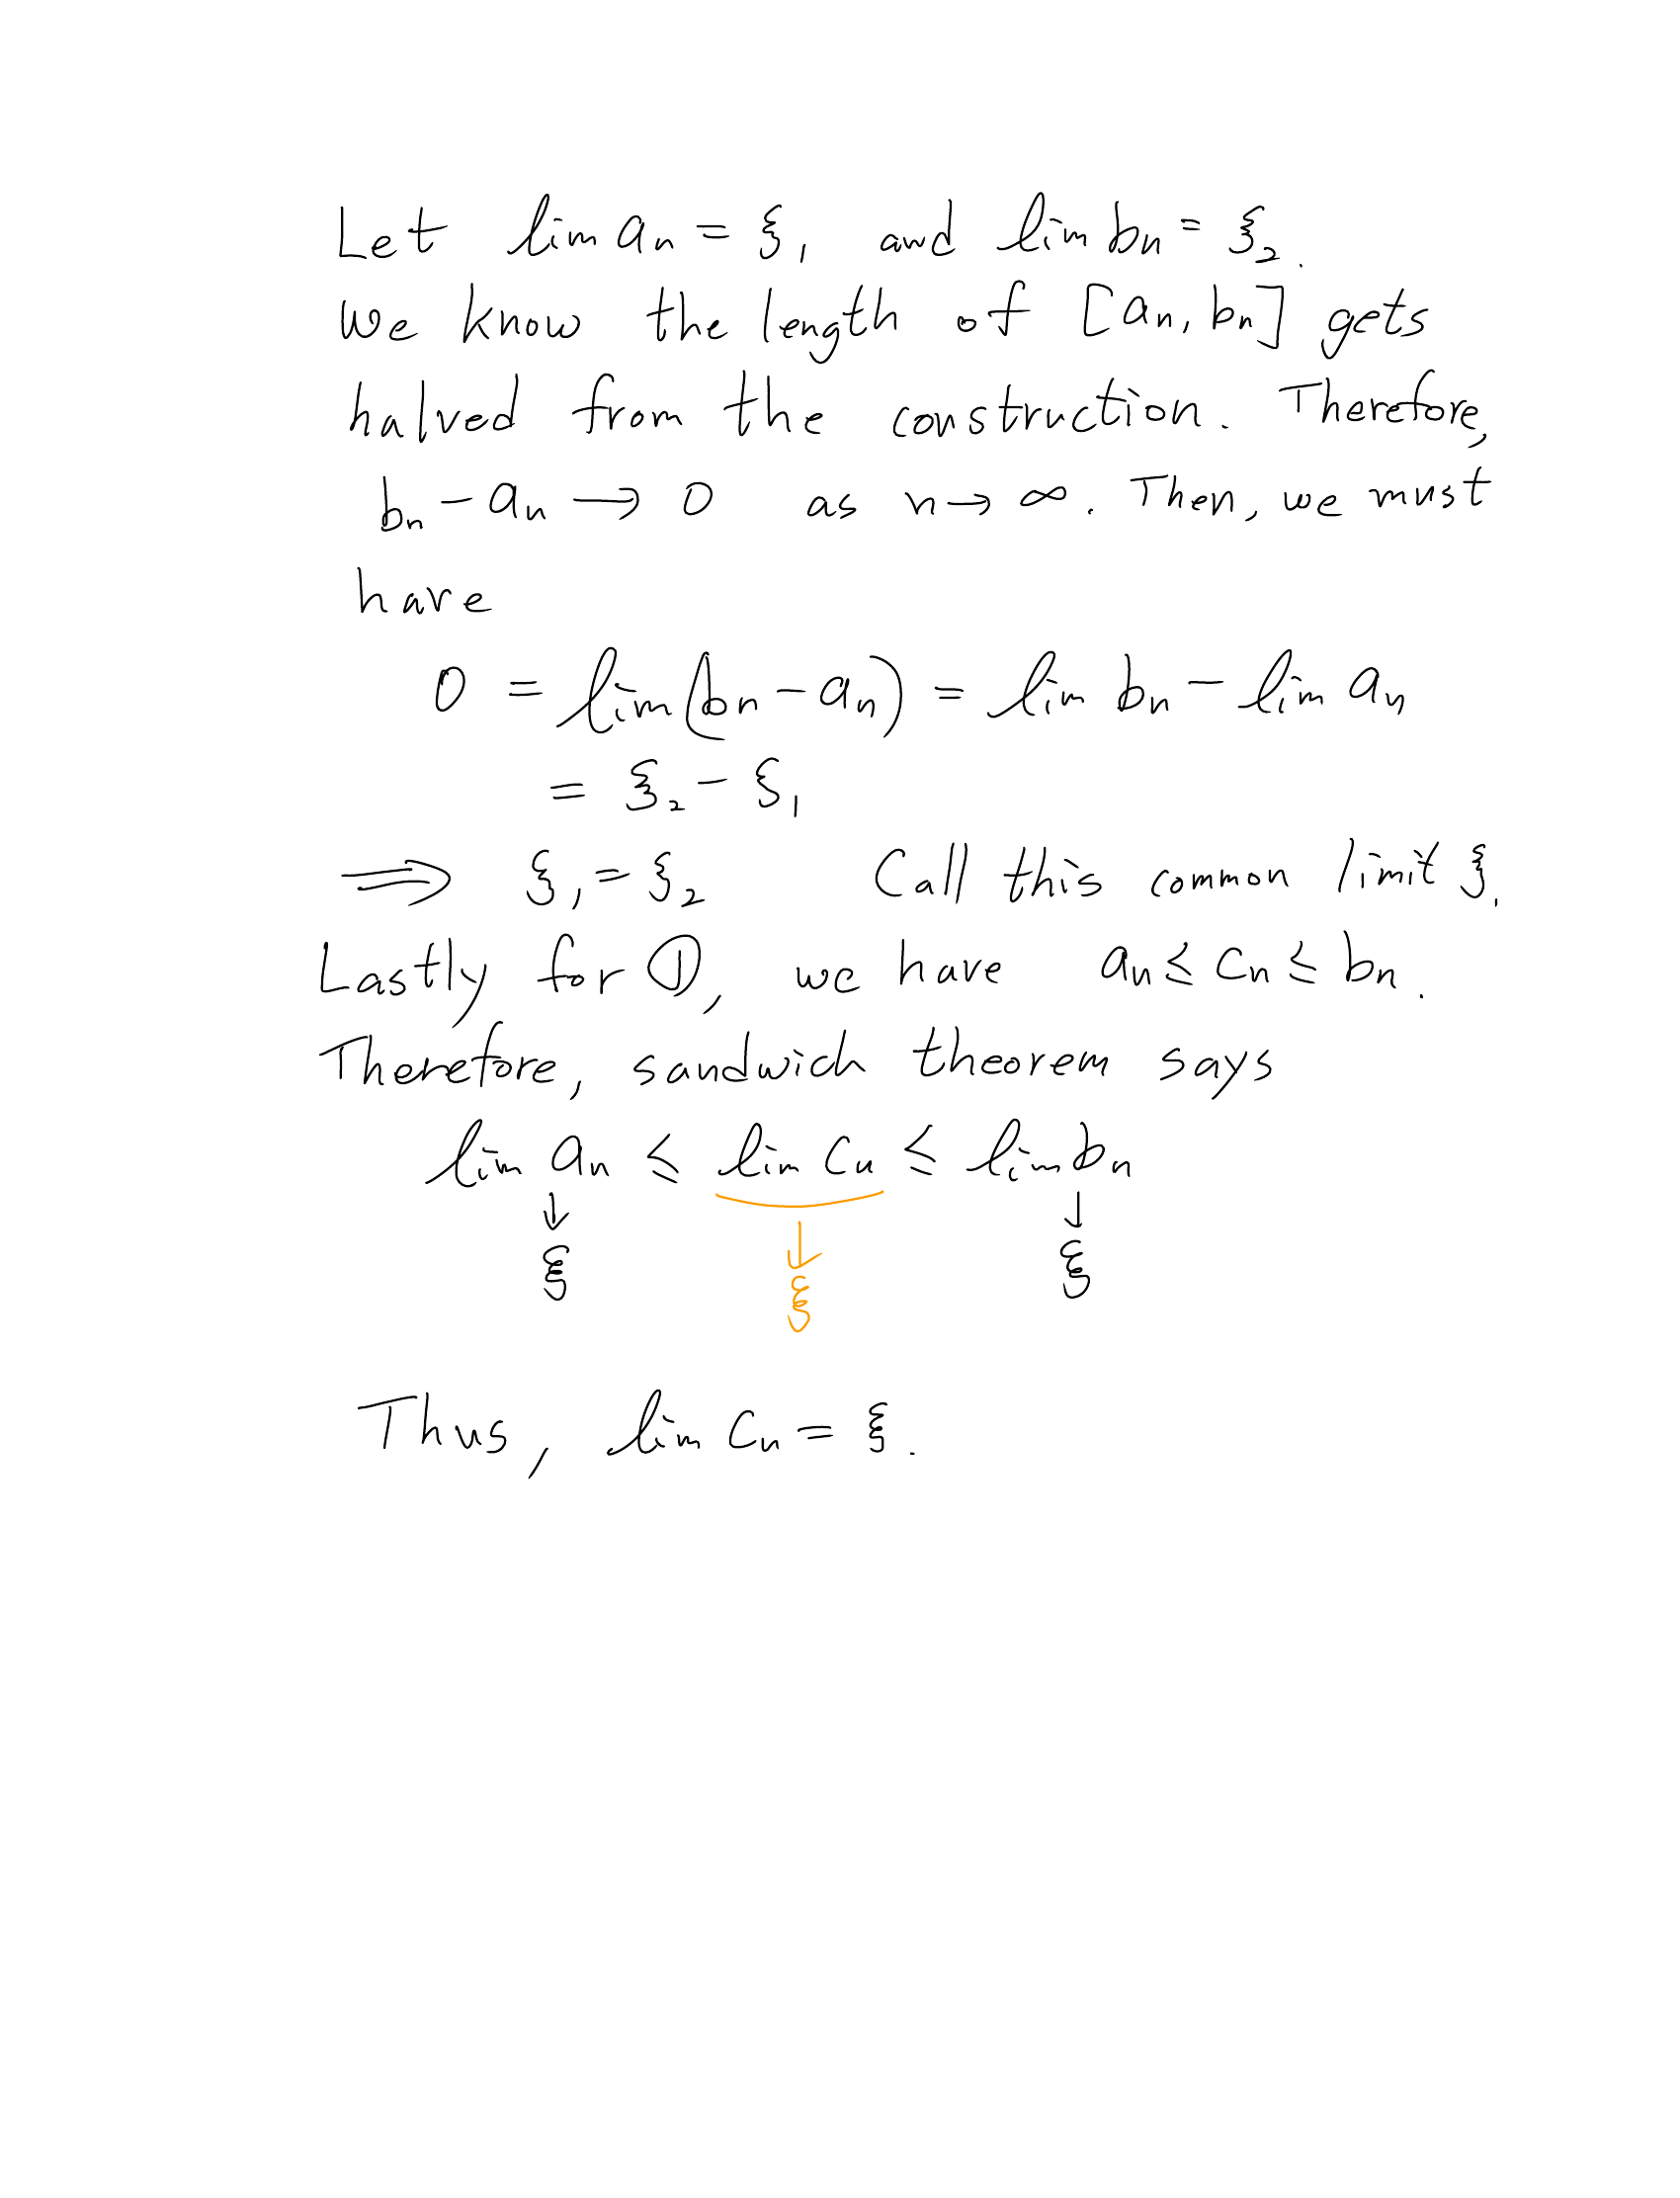 Let lim aₙ = ξ₁ and lim bₙ = ξ₂.
We know the length of [aₙ, bₙ] gets
halved from the construction. Therefore,
bₙ - aₙ → 0 as n → ∞. Then, we must
have
0 = lim(bₙ - aₙ) = lim bₙ - lim aₙ
= ξ₂ - ξ₁
⟹ ξ₁ = ξ₂ Call this common limit ξ.
Lastly for ①, we have aₙ ≤ cₙ ≤ bₙ.
Therefore, sandwich theorem says
lim aₙ ≤ lim cₙ ≤ lim bₙ
↓ ↓ ↓
ξ ξ ξ
Thus, lim cₙ = ξ.